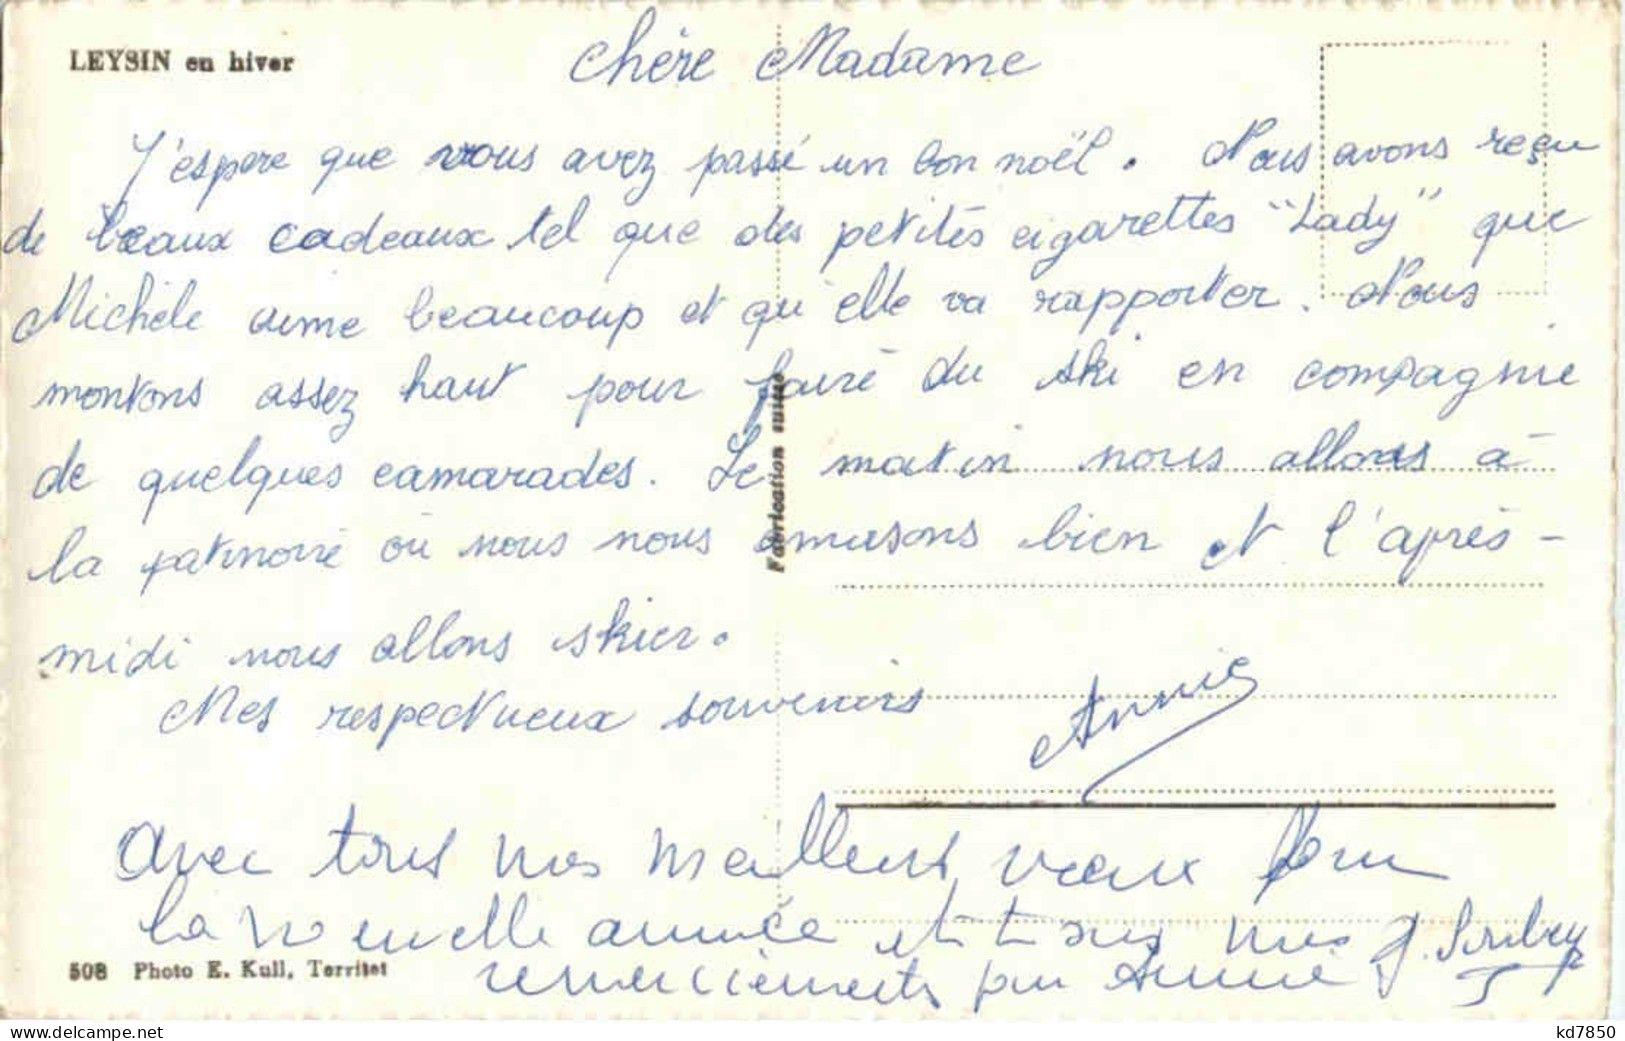 LEYSIN en hiver
Chère Madame
J'espere que vous avez passé un bon noël. Nous avons reçu
de beaux cadeaux tel que des petites cigarettes "Lady" que
Michèle aime beaucoup et qu'elle va rapporter. Nous
montons assez haut pour faire du ski en compagnie
de quelques camarades. Le matin nous allons à
la patinoire où nous nous amusons bien et l'après-
midi nous allons skier.
Mes respectueux souvenirs
Annie
Fabrication suisse
Avec tous nos meilleurs vœux pour
la nouvelle année et tous mes
remerciements pour Annie
508 Photo E. Kull, Territet
www.delcampe.net
kd7850